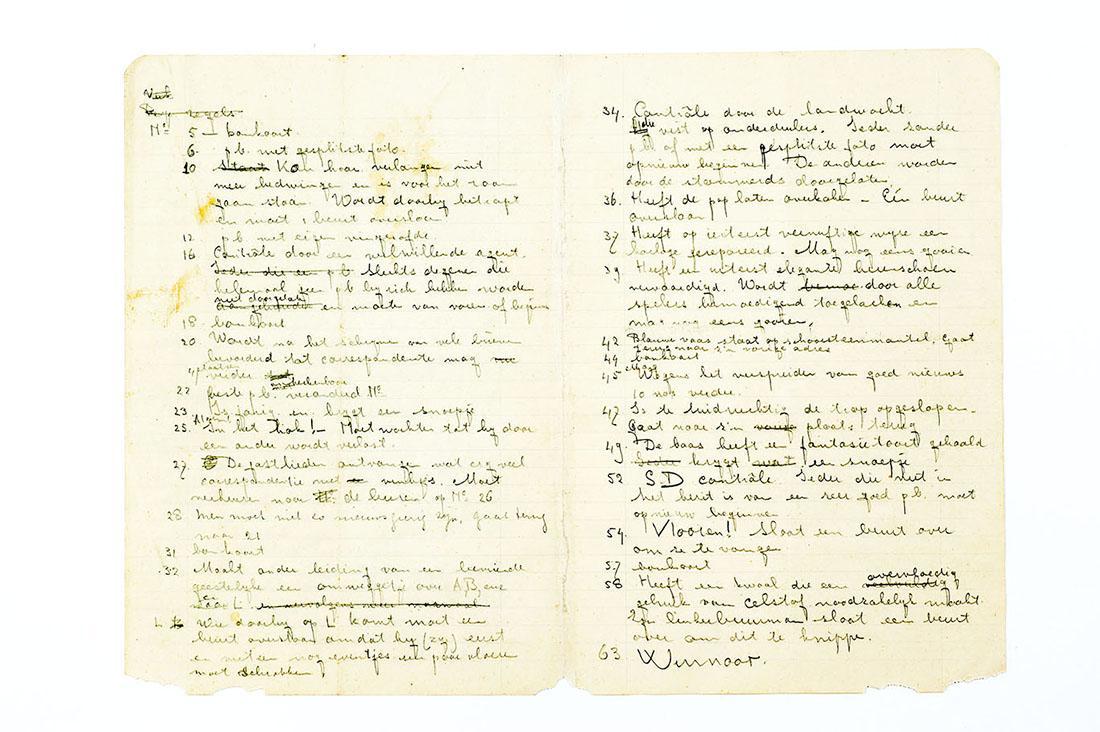 regels
No 5 - bonkaart
6. p.b. met gesplitste foto.
10 Staat Kan haar verlangen niet
meer bedwingen en is voor het raam
gaan staan. Wordt daarbij betrapt
en moet 1 beurt overslaan
12 p.b. met eigen vingerafdr.
16 Contrôle door een welwillende agent.
Ieder die een p.b. Slechts degenen die
helemaal geen p.b. bij zich hebben worden
niet doorgelaten en moeten van voren af beginnen
18. bonkaart
20 Wordt na het schrijven van vele brieven
bevorderd tot correspondente mag
verder
22 p.b. veranderd No
23. Is jarig en krijgt een snoepje
25. In het hok! - Moet wachten tot hij door
een ander wordt verlost.
27. De gastheden ontvangen wat erg veel
correspondentie met Moet
verhuizen naar de buren op No 26
28 Men moet niet zo nieuwsgierig zijn, gaat terug
naar 21
31 bonkaart
32 Maakt onder leiding van een bevriende
geestelijke een omweggetje over A, B, enz
naar L. en vervolgens weer normaal
L Wie daarbij op L komt moet een
beurt overslaan omdat hij (zij) eerst
en meteen nog eventjes een paar vloeren
moet schrobben
34. Contrôle door de landwacht.
vest op onderduikers. Ieder zonder
p.b. of met een gesplitste foto moet
opnieuw beginnen. De anderen worden
door de stommerds doorgelaten
36. Heeft de pap laten overkoken - Eén beurt
overslaan
37 Heeft op uiterst vernuftige wijze een
gerepareerd. Mag nog eens gooien
39 Heeft een uiterst elegante
vervaardigd. Wordt door alle
spelers bemoedigend toegelachen en
mag nog eens gooien.
42 Blauwe vaas staat op schoorsteenmantel. Gaat
terug naar z'n vorige adres
44 bonkaart
45 Mag Wegens het verspreiden van goed nieuws
10 nos verder.
47 Is te luidruchtig de trap opgeslopen.
Gaat naar z'n plaats terug
49. De baas heeft een fantasietaart gehaald
Ieder krijgt wat een snoepje
52 SD contrôle. Ieder die niet in
het bezit is van een zeer goed p.b. moet
opnieuw beginnen
54. Vlooien! Slaat een beurt over
om ze te vangen
57 bonkaart
58 Heeft een kwaal die een overvloedig
gebruik van celstof noodzakelijk maakt.
Zijn linkerbuurman slaat een beurt
over om dit te knippen.
63 Winnaar.